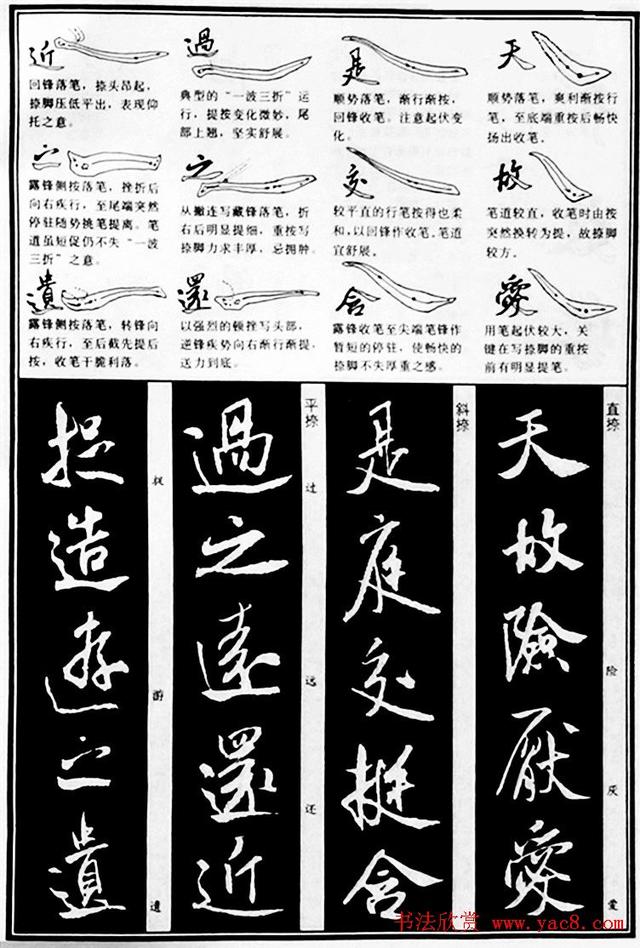 天
顺势落笔，爽利渐按行
笔，至底端重按后畅快
扬出收笔。
故
笔道较直，收笔时由按
突然换转为提，故捺脚
较方。
愛
用笔起伏较大，关
键在写捺脚的重按
前有明显提笔。
是
顺势落笔，渐行渐按，
回锋收笔。注意起伏变
化。
交
较平直的行笔按得也柔
和，以回锋作收笔。笔道
宜舒展。
含
露锋收笔至尖端笔锋作
暂短的停驻，使畅快的
捺脚不失厚重之感。
過
典型的“一波三折”运
行，提按变化微妙，尾
部上翘，坚实舒展。
之
从撇连写藏锋落笔，折
右后明显提细，重按写
捺脚力求丰厚，忌拥肿。
還
以强烈的顿挫写头部，
逆锋疾势向右渐行渐提，
送力到底。
近
回锋落笔，捺头昂起，
捺脚压低平出，表现仰
托之意。
之
露锋侧按落笔，挫折后
向右疾行，至尾端突然
停驻随势挑笔提离。笔
道虽短促仍不失“一波
三折”之意。
遺
露锋侧按落笔，转锋向
右疾行，至后截先提后
按，收笔干脆利落。
直捺
天故險厭愛
险 厌 爱
斜捺
是庭交挺含
平捺
過之遠還近
过 远 还
捉造遊之遺
游 遗
书法欣赏 www.yac8.com